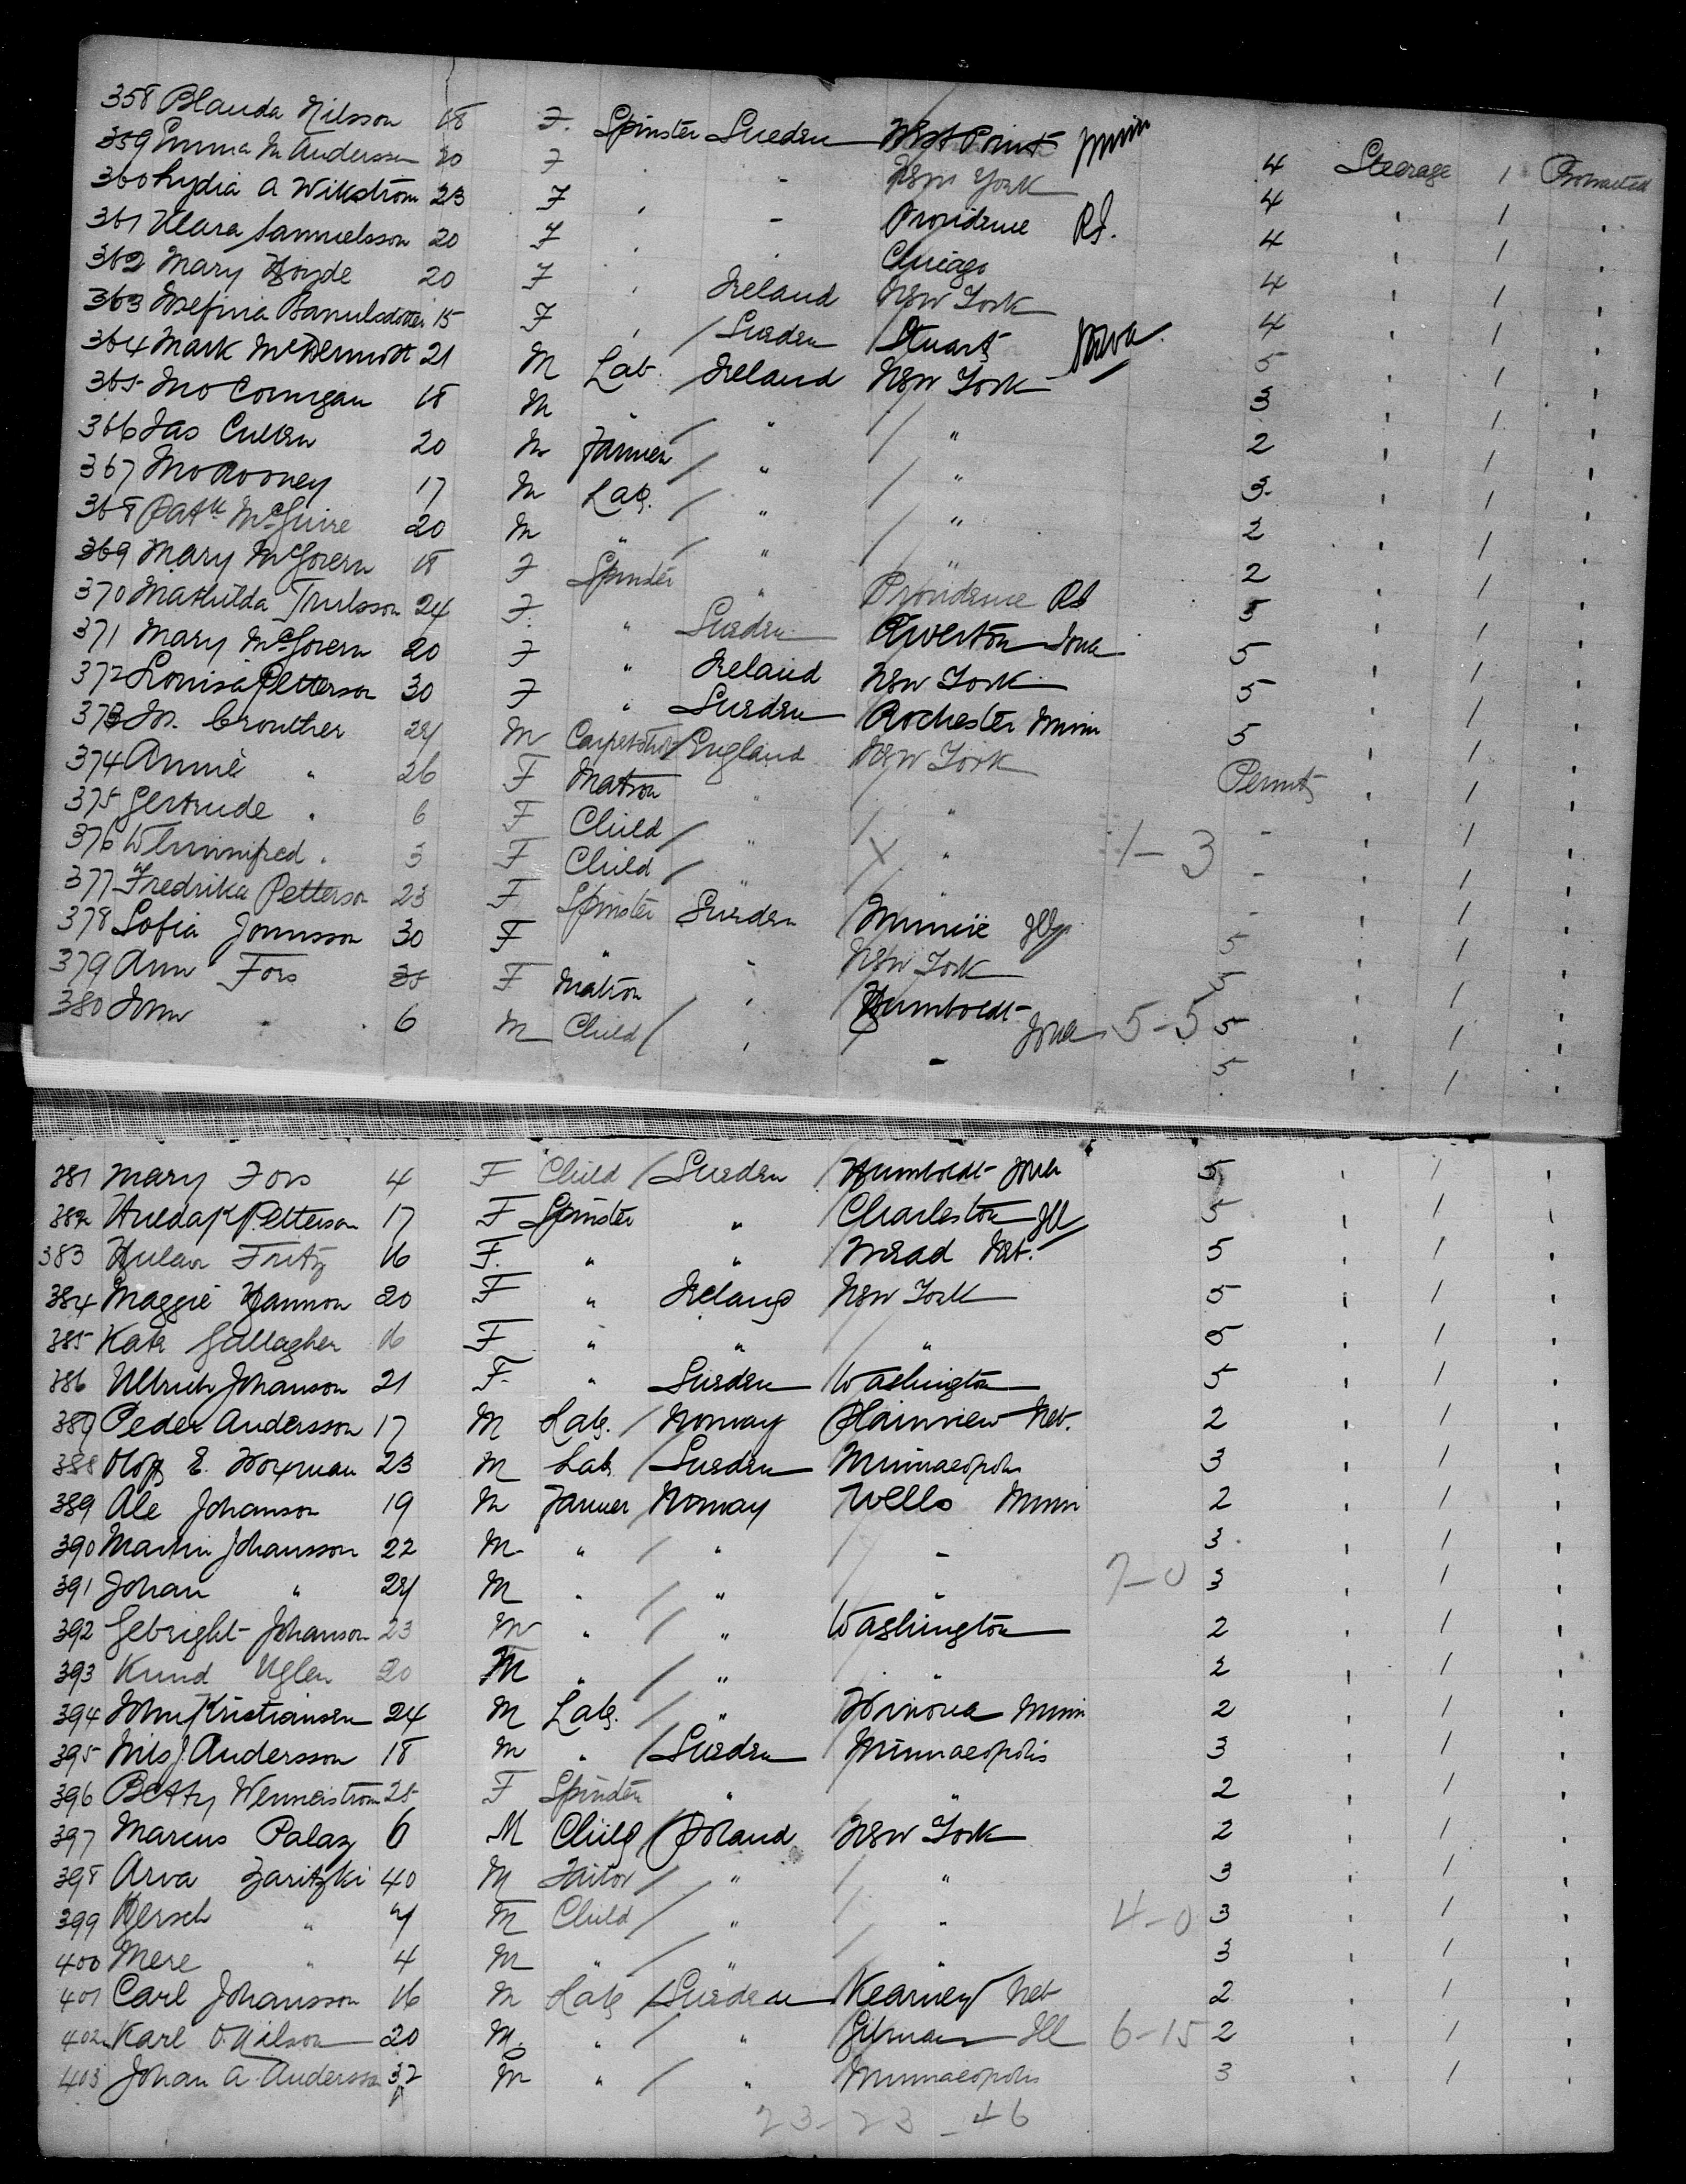 358 Blanda Nilsson 18 F. Spinster Sweden West Point Minn 4 Steerage 1 Protracted
359 Emma M Andersson 20 F " - New York 4 " 1 "
360 Lydia A Wikström 23 F " - Providence RI. 4 " 1 "
361 Klara Samuelsson 20 F " Chicago 4 " 1 "
362 Mary 20 F " Ireland New York 4 " 1 "
363 Josefina 15 F " / Sweden / Stuart Iowa 5 " 1 "
364 Mark McDermott 21 M Lab. / Ireland New York 3 " 1 "
365 Jno Corrigan 18 M " / " / " 2 " 1 "
366 Jas Cullen 20 M Farmer / " / " 3 " 1 "
367 Jno Rooney 17 M Lab. / " / " 2 " 1 "
368 Patk McGuire 20 M " / " / " 2 " 1 "
369 Mary McGovern 18 F Spinster " Providence RI 5 " 1 "
370 Mathilda Trulsson 24 F. " Sweden Riverton Iowa 5 " 1 "
371 Mary McGovern 20 F " Ireland New York 5 " 1 "
372 Louisa Petterson 30 F " Sweden Rochester Minn 5 " 1 "
373 Jn. Crouther 24 M / England New York Permit " 1 "
374 Annie " 26 F Matron " / " - " 1 "
375 Gertrude " 6 F Child / " / " 1-3 - " 1 "
376 Winnifred " 3 F Child / " / " - " 1 "
377 Fredrika Petterson 23 F Spinster Sweden / Ills 5 " 1 "
378 Sofia Jonnsson 30 F " " New York 5 " 1 "
379 Ann Fors 35 F Matron " " / Humboldt Iowa 5-5 5 " 1 "
380 John " 6 M Child / " / - 5 " 1 "
381 Mary Fors 4 F Child / Sweden / Humboldt Iowa 5 " 1 "
382 Hulda K Petterson 17 F Spinster " / Charleston Ill 5 " 1 "
383 Fritz 16 F. " " / Mead Neb. 5 " 1 "
384 Maggie Hannon 20 F " Ireland New York 5 " 1 "
385 Kate Gallagher 16 F " " / " 5 " 1 "
386 Ullrich Johanson 21 F. " Sweden / Washington 5 " 1 "
387 Peder Andersson 17 M Lab. / Norway Plainview Neb. 2 " 1 "
388 Olof E. 23 M Lab / Sweden Minneapolis 3 " 1 "
389 Ole Johanson 19 M Farmer / Norway Wells Minn 2 " 1 "
390 Martin Johansson 22 M " / " / - 3 " 1 "
391 Johan " 24 M " / " / " 7-0 3 " 1 "
392 Gebright Johanson 23 M " / " Washington 2 " 1 "
393 Knud Uglen 20 M " / " / " 2 " 1 "
394 John Kristiansen 24 M Lab. / " Winona Minn 2 " 1 "
395 Nils J. Andersson 18 M " / Sweden / Minneapolis 3 " 1 "
396 Betty Wennerstrom 25 F Spinster " " 2 " 1 "
397 Marcus Palaz 6 M Child / Poland New York 2 " 1 "
398 Arva Zaritzki 40 M Tailor / " / " 3 " 1 "
399 Hersch " 7 M Child / " / " 4-0 3 " 1 "
400 Mere " 4 M " / " / " 3 " 1 "
401 Carl Johansson 16 M Lab / Sweden Kearney Neb 2 " 1 "
402 Karl O. Nilson 20 M. " / " / Gilman Ill 6-15 2 " 1 "
403 Johan A. Andersson 32 M " / " / Minneapolis 3 " 1 "
23-23-46